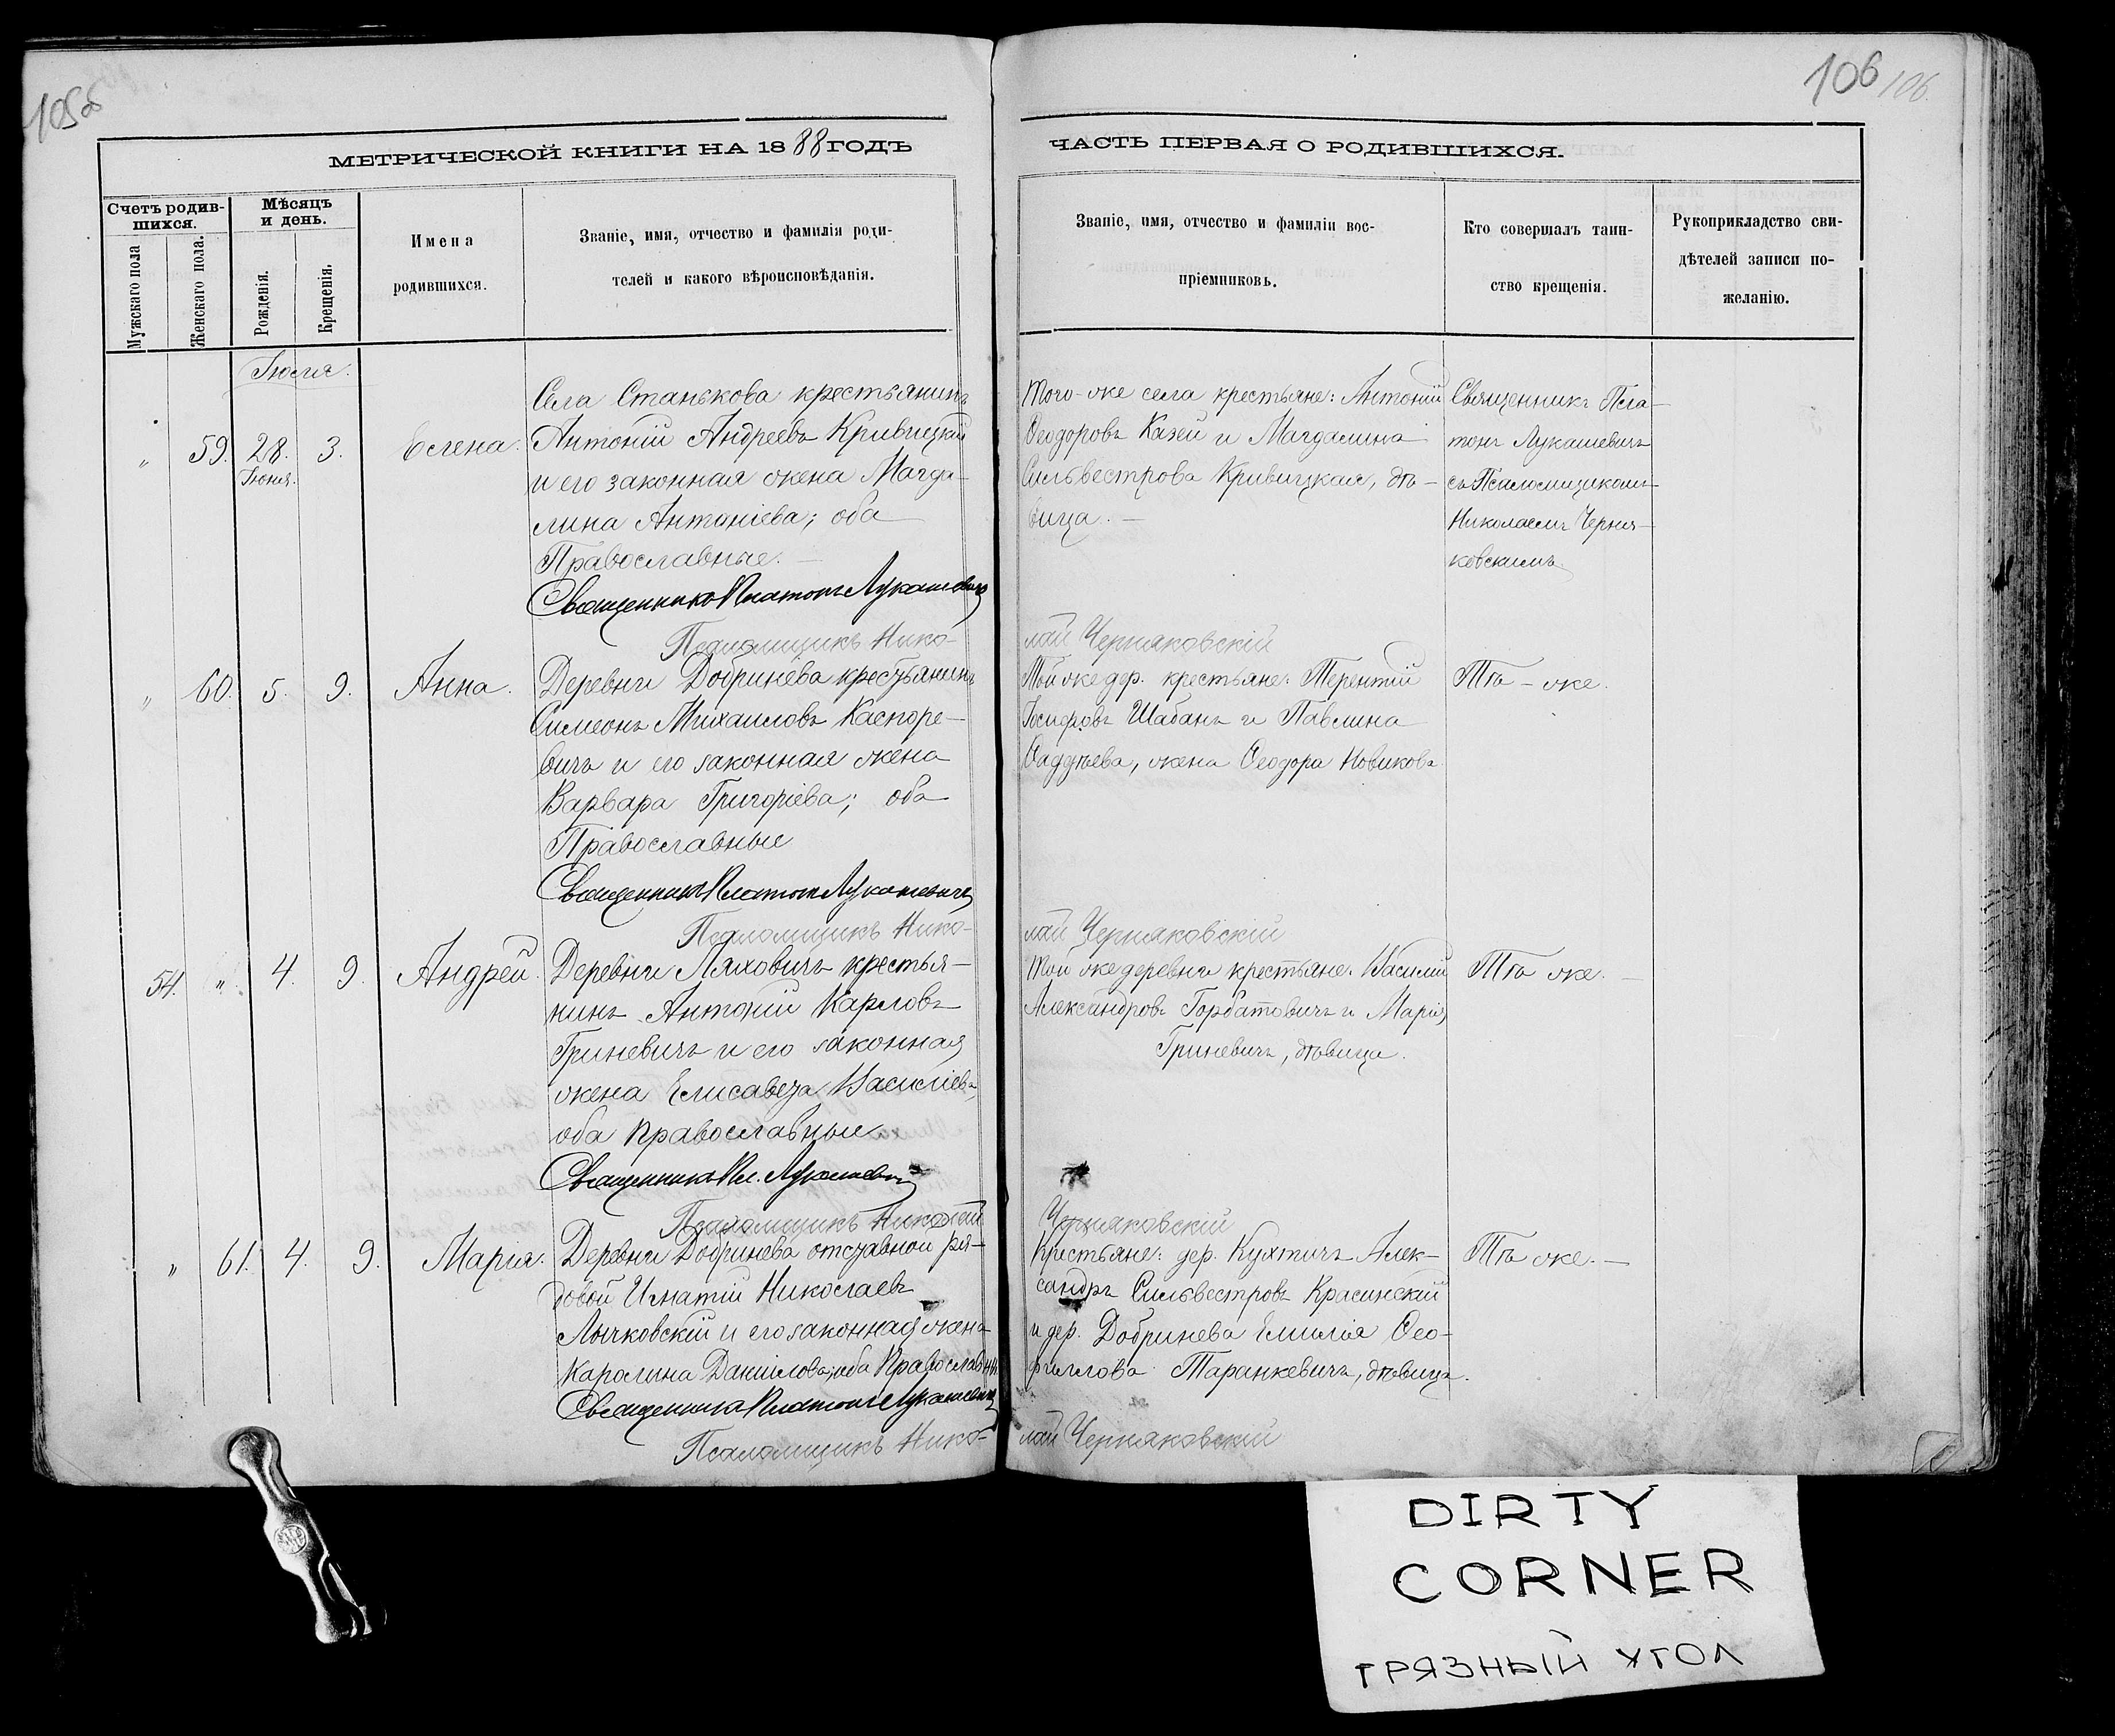 105об
106 106
МЕТРИЧЕСКОЙ КНИГИ НА 1888 ГОДЪ
ЧАСТЬ ПЕРВАЯ О РОДИВШИХСЯ.
Счетъ родив-
шихся.
Мужскаго пола
Женскаго пола.
Мѣсяцъ
и день.
Рожденія.
Крещенія.
Имена
родившихся.
Званіе, имя, отчество и фамилія роди-
телей и какого вѣроисповѣданія.
Званіе, имя, отчество и фамиліи вос-
пріемниковъ.
Кто совершалъ таин-
ство крещенія.
Рукоприкладство сви-
дѣтелей записи по-
желанію.
Іюля.
" 59. 28. 3. Елена.
Іюня.
Села Станькова крестьянинъ
Антоній Андреевъ Кривицкій
и его законная жена Магда-
лина Антоніева; оба
Православные.
Священникъ Платонъ Лукашевичъ
Псаломщикъ Нико-
Того-же села крестьяне: Антоній
Ѳеодоровъ Казей и Магдалина
Сильвестрова Кривицкая, дѣ-
вица.
лай Черняковскій
Священникъ Пла-
тонъ Лукашевичъ
съ Псаломщикомъ
Николаемъ Черня-
ковскимъ.
" 60. 5. 9. Анна.
Деревни Добринева крестьянинъ
Симеонъ Михаиловъ Каспоре-
вичъ и его законная жена
Варвара Григоріева; оба
Православные
Священникъ Платонъ Лукашевичъ
Псаломщикъ Нико-
Той же дер. крестьяне: Терентій
Іосифовъ Шабанъ и Павлина
Ѳаддѣева, жена Ѳеодора Новикова.
лай Черняковскій
Тѣ-же.
54. " 4. 9. Андрей.
Деревни Ляховичъ крестья-
нинъ Антоній Карловъ
Гриневичъ и его законная
жена Елисавета Василіева
оба Православные
Священникъ Пл. Лукашевичъ
Псаломщикъ Николай
Той же деревни крестьяне: Василій
Александровъ Горбатовичъ и Марія
Гриневичъ, дѣвица.
Черняковскій
Тѣ же.
" 61. 4. 9. Марія.
Деревни Добринева отставной ря-
довой Игнатій Николаевъ
Лычковскій и его законная жена
Каролина Даніилова, оба Православные
Священникъ Платонъ Лукашевичъ
Псаломщикъ Нико-
Крестьяне: дер. Кухтичъ Алек-
сандръ Сильвестровъ Красинскій
и дер. Добринева Емилія Ѳео-
филова Таранкевичъ, дѣвица.
лай Черняковскій
Тѣ же.
DIRTY
CORNER
ГРЯЗНЫЙ УГОЛ